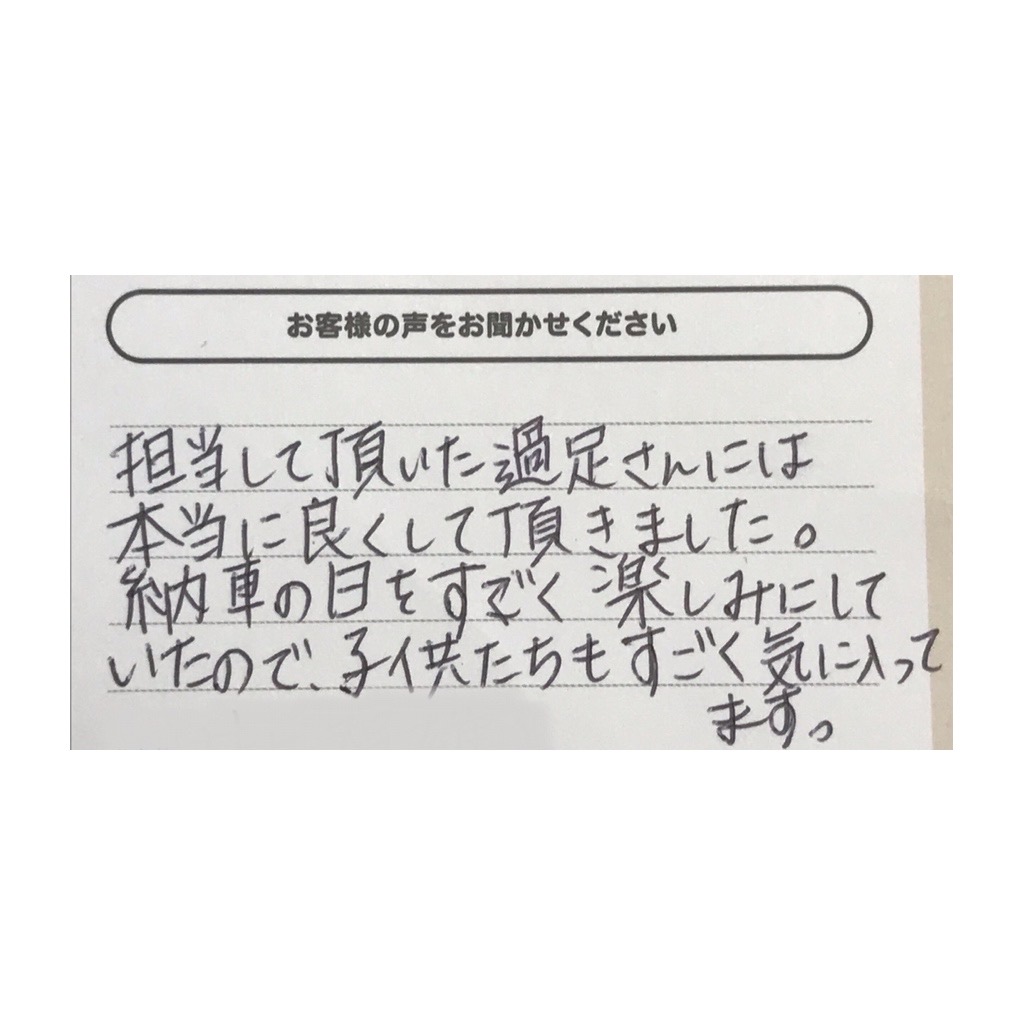 お客様の声をお聞かせください
担当して頂いた過足さんには
本当に良くして頂きました。
納車の日をすごく楽しみにして
いたので、子供たちもすごく気に入って
ます。